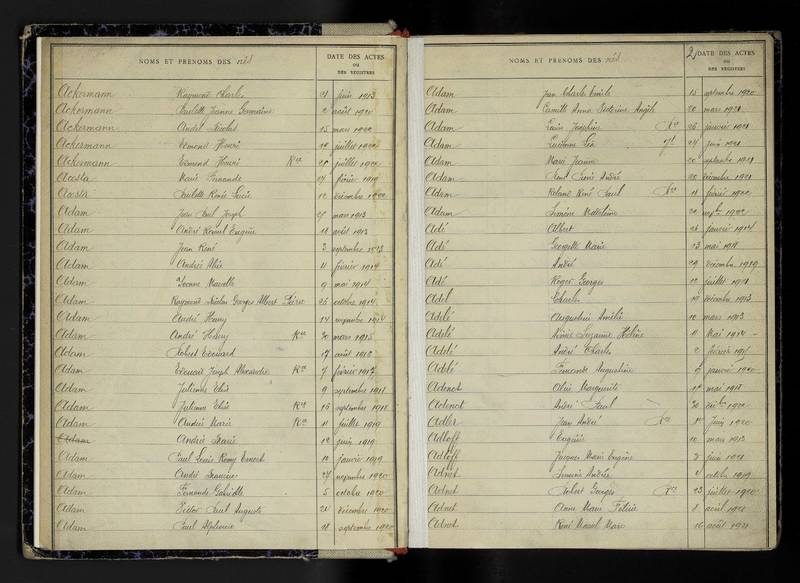 NOMS ET PRÉNOMS DES nés
DATE DES ACTES
OU
DES REGISTRES
Ackermann Raymond Charles 21 juin 1913
Ackermann Paulette Jeanne Germaine 2 août 1920
Ackermann André Nicolas 15 mars 1922
Ackermann Edmond Henri 19 juillet 1922
Ackermann Edmond Henri Rce juillet 1922
Acosta Marie Fernande février 1919
Acosta Paulette Renée Lucie 12 décembre 1922
Adam Jean Paul Joseph 27 mars 1913
Adam André Eugène 11 août 1913
Adam Jean René 3 septembre 1913
Adam 11 février 1914
Adam Yvonne Marcelle 9 mai 1914
Adam Raymond Nicolas Georges Albert Pierre 26 octobre 1914
Adam André Henry 14 1914
Adam André Henry Rce 30 mars 1915
Adam Robert Edouard 17 août 1915
Adam Edouard Joseph Alexandre Rce 7 février 1917
Adam Julienne Elise 9 septembre 1918
Adam Julienne Elise Rce 16 septembre 1918
Adam Marie Rce 11 juillet 1919
Adam Marie juin 1919
Adam Paul Louis Remy Ernest 10 janvier 1919
Adam André Maurice 27 novembre 1920
Adam Fernande Gabrielle 5 octobre 1920
Adam Victor Paul Auguste 21 décembre 1920
Adam Paul Alphonse 18 septembre 1920
NOMS ET PRÉNOMS DES nés
2
DATE DES ACTES
OU
DES REGISTRES
Adam Jean Charles Emile 15 septembre 1920
Adam Camille Anna Angèle 20 mars 1921
Adam Louis Josephin Rce 26 janvier 1921
Adam Lucienne 24 juin 1921
Adam Marie Jeanne 20 septembre 1921
Adam René André décembre 1921
Adam Roland René Paul Rce 11 février 1922
Adam Simone Madeleine 20 1922
Adé Albert 26 janvier 1914
Adé Georgette Marie 13 mai 1918
Adé André 29 décembre 1919
Adé Roger Georges 12 juillet 1921
Adel Charles 19 décembre 1913
Adelé Augustine Amélie 10 mars 1913
Adelé Suzanne Hélène 11 Mai 1914
Adelé André Charles 2 février
Adelé Augustine 9 janvier 1920
Adenot Marguerite mai 1918
Adenot Paul 30
Adler Jean André Rce juin 1920
Adloff Eugénie 10 mars 1913
Adloff Jacques Marie Eugène 3 juin 1921
Adnet Andrée octobre 1919
Adnet Robert Georges Rce 23 juillet 1920
Adnet Anne Marie 8 avril 1921
Adnet René Marcel Marie 16 août 1921